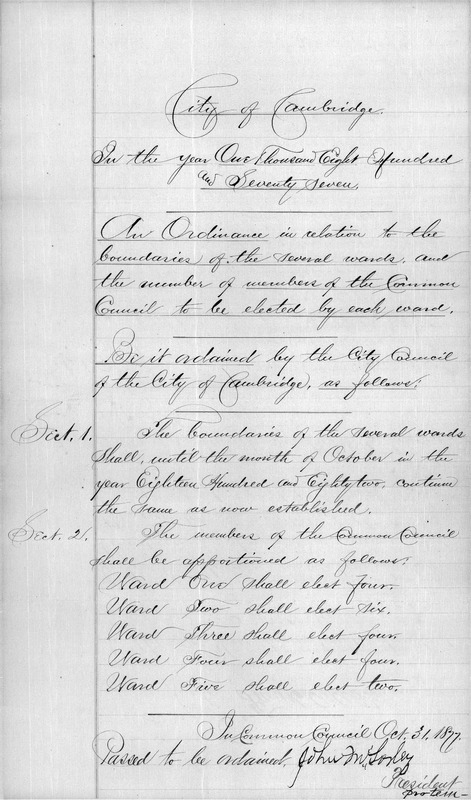 City of Cambridge.
In the year One Thousand Eight Hundred
and Seventy seven.
An Ordinance in relation to the
boundaries of the several wards, and
the number of members of the Common
Council to be elected by each ward.
Be it ordained by the City Council
of the City of Cambridge, as follows:
Sect. 1. The boundaries of the several wards
shall, until the month of October in the
year Eighteen Hundred and Eighty two, continue
the same as now established.
Sect. 2. The members of the Common Council
shall be apportioned as follows:
Ward One shall elect four.
Ward Two shall elect six.
Ward Three shall elect four.
Ward Four shall elect four.
Ward Five shall elect two.
In Common Council Oct. 31, 1877.
Passed to be ordained. John
President
protem-